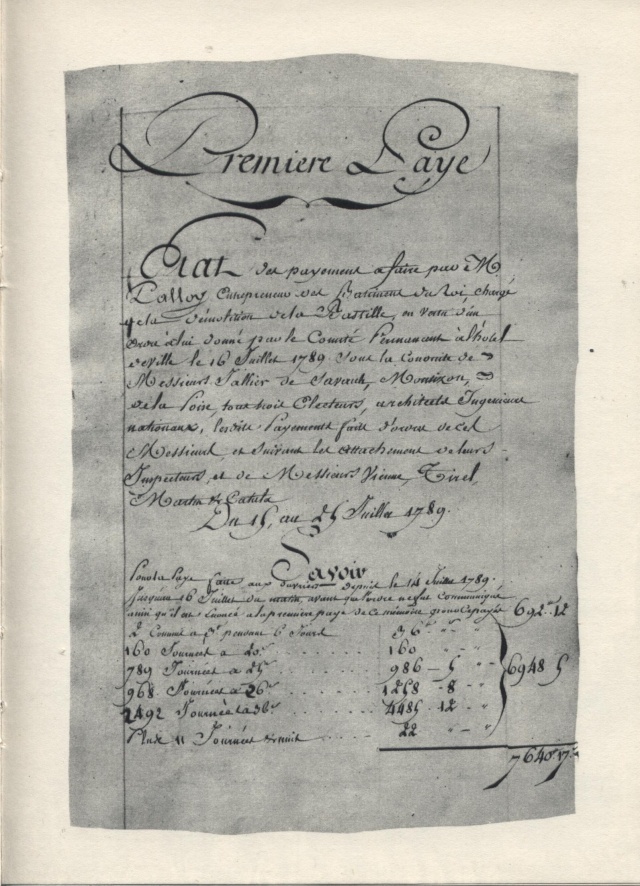 Premiere Paye
Etat des payement a faire par M.
Palloy Entrepreneur des Batiment du Roi, chargé
de la Démolition de la Bastille, en Vertu d'un
ordre à lui donné par le Comité Permanant à l'hotel
de ville le 16 Juillet 1789. sous la Conduite de
Messieurs Jallier de Savault, Montizon,
de la Poize, tous trois Electeurs, architects Ingenieurs
nationaux, lesdits Payements faits d'ordre de ces
Messieurs, et suivant les attachement de leurs
Inspecteurs, et de Messieurs Vienne, Tirel,
Martin & Catala
Du 15, au 25 Juillet 1789.
Savoir
Pour la Paye faite aux ouvriers depuis le 14 Juillet 1789.
Jusqu'au 16 Juillet du matin, avant que l'ordre ne fut Communiqué
ainsi qu'il est énoncé a la premiere page de ce mémoire 692 12
2 Commis a 3 pendant 6 Jours 36
160 Journées à 20 160
789 Journées a 25 986 - 5
968 Journées a 26 1258 - 8
2492 Journées a 36 4485 - 12
Plus 11 Journées de nuit 22
6948 5
7640 17